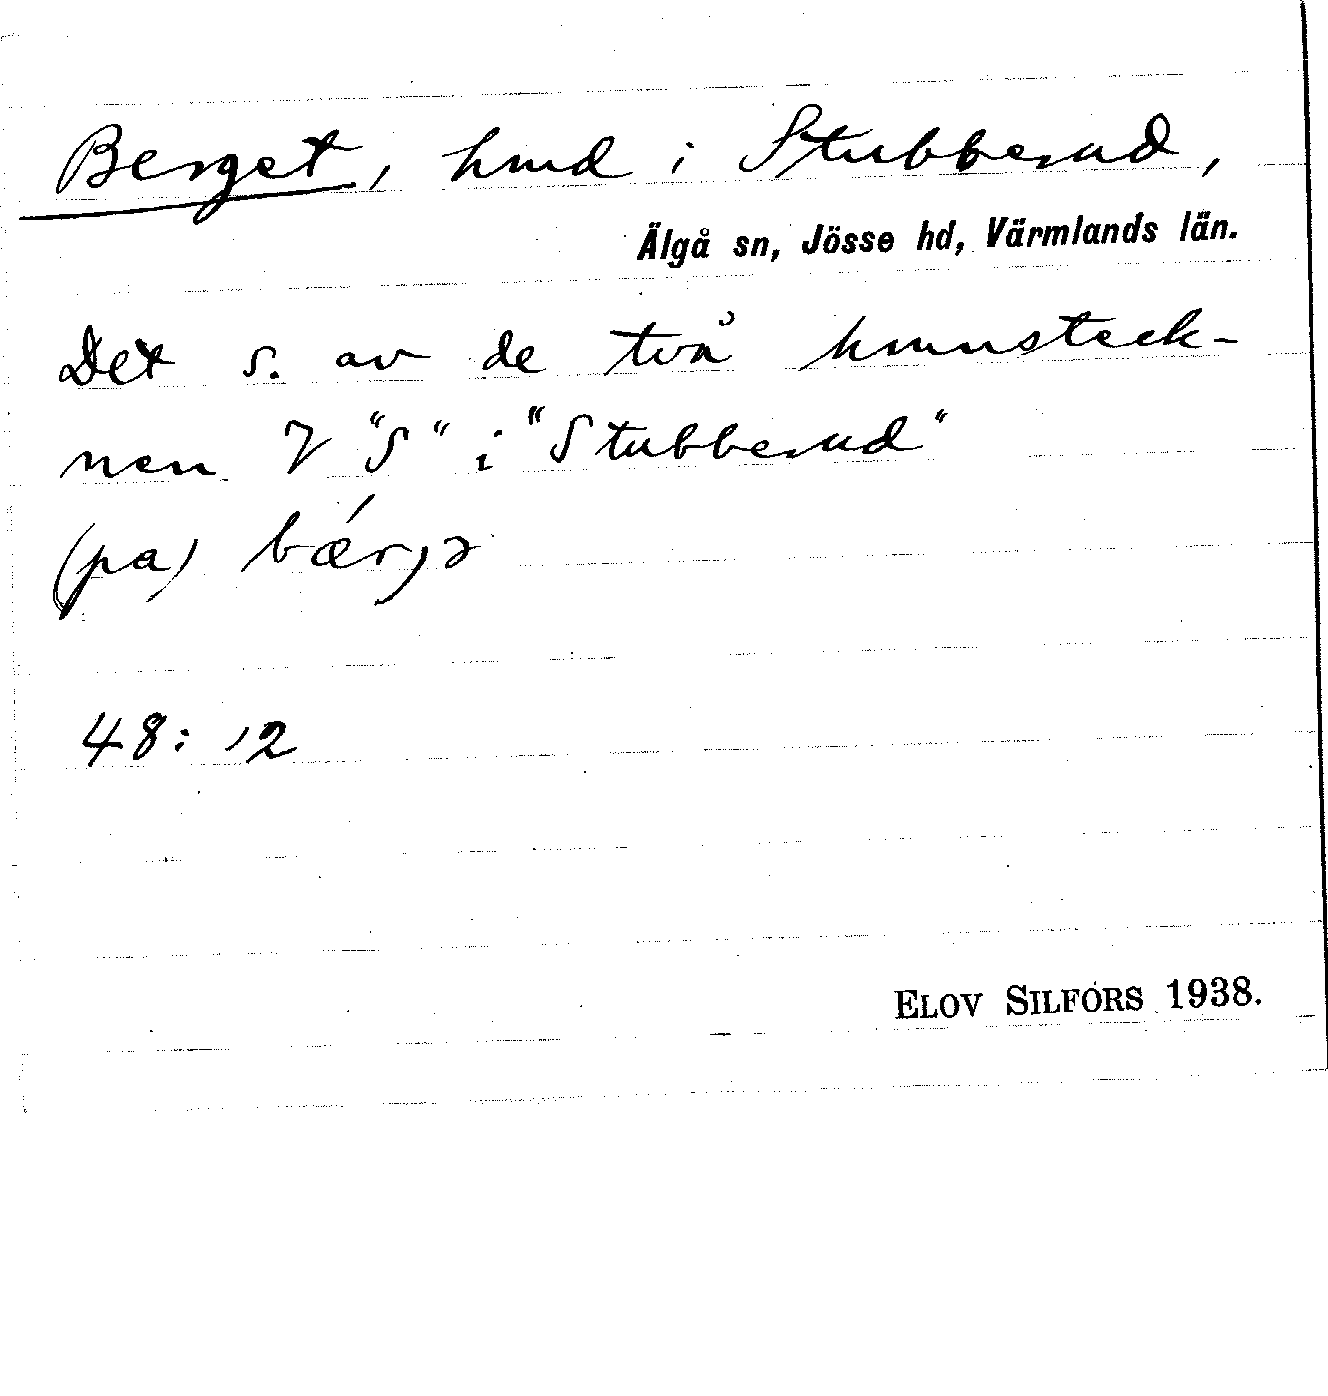 Berget, hmd i Stubberud,
Älgå sn, Jösse hd, Värmlands län.
Det s. av de två hmnsteck-
nen V "S" i "Stubberud"
(pa) bǽrjə
48: 12
ELOV SILFORS 1938.